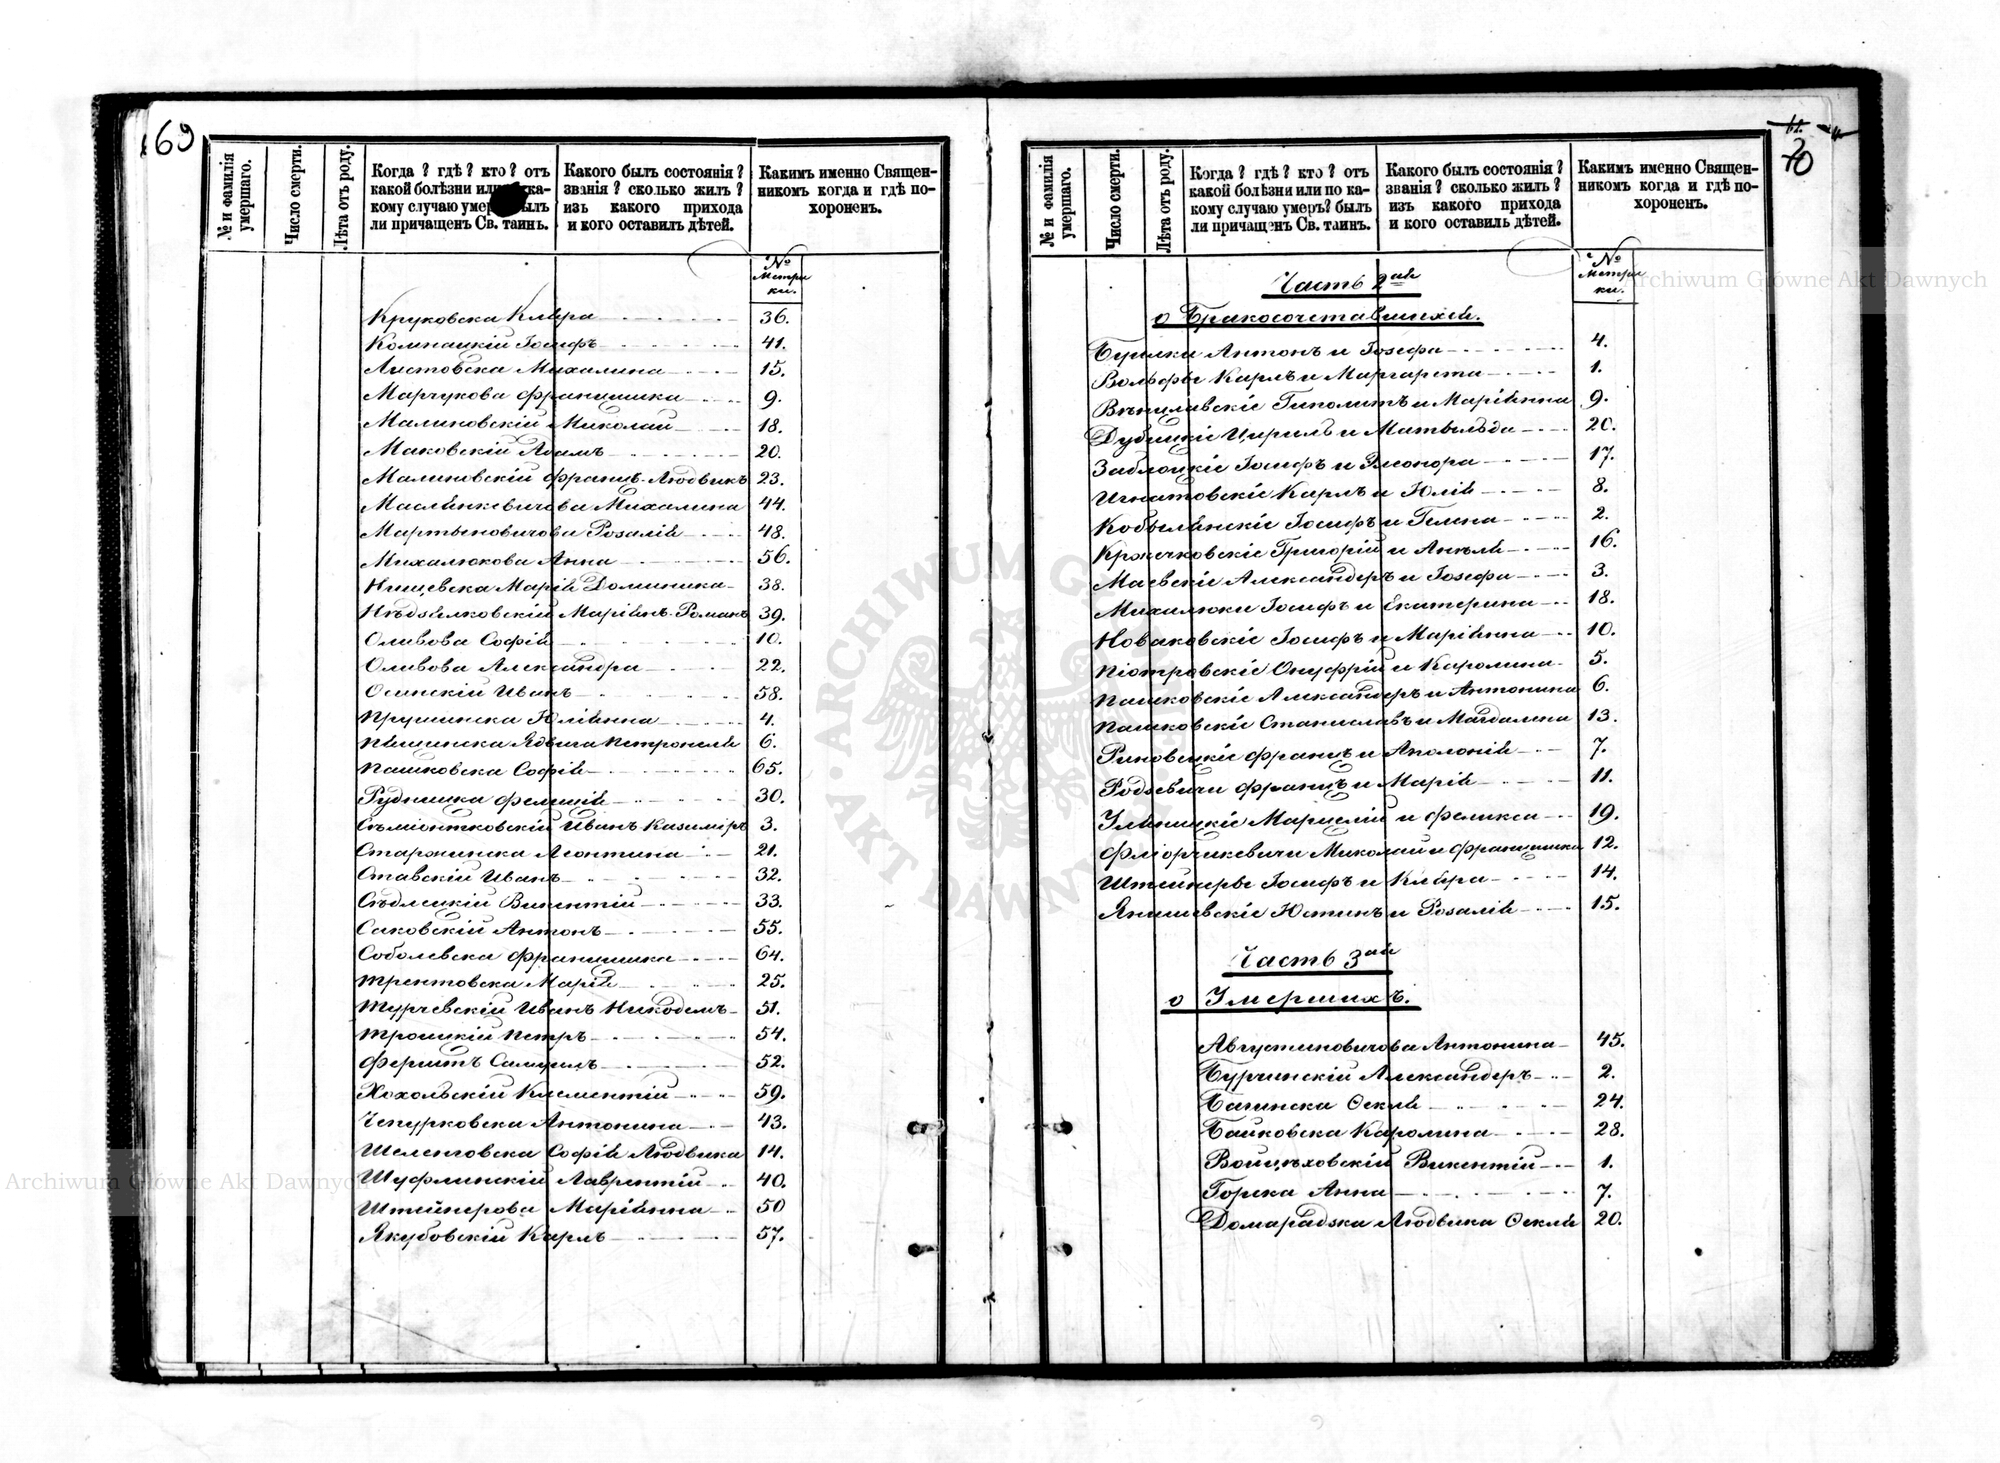 69
№ и фамилія
умершаго.
Число смерти.
Лѣта отъ роду.
Когда? гдѣ? кто? отъ
какой болѣзни или ка-
кому случаю умеръ былъ
ли причащенъ Св. таинъ.
Какого былъ состоянія?
званія? сколько жилъ?
изъ какого прихода
и кого оставилъ дѣтей.
Какимъ именно Священ-
никомъ когда и гдѣ по-
хороненъ.
№
Метри
ки.
Круковска Кляра 36.
Компацкій Іосифъ 41.
Листовска Михалина 15.
Марчукова Францишка 9.
Малиновскій Миколай 18.
Маковскій Адамъ 20.
Малиновскій Франц. Людвикъ 23.
Маслянкевичова Михалина 44.
Мартыновичова Розалія 48.
Михалюкова Анна 56.
Нищевска Марія Доминика 38.
Нѣдзялковскій Маріянъ Романъ 39.
Оливова Софія 10.
Оливова Александра 22.
Осинскій Иванъ 58.
Прушинска Юліянна 4.
Пящинска Ядвига Петронеля 6.
Пашковска Софія 65.
Рудницка Фелиція 30.
Сѣміонтковскій Иванъ Казимиръ 3.
Старжинска Леонтина 21.
Ставскій Иванъ 32.
Сѣдлецкій Викентій 33.
Саковскій Антонъ 55.
Соболевска Францишка 64.
Трентовска Марія 25.
Турчевскій Иванъ Никодемъ 51.
Троцкій Петръ 54.
Ферштъ Самуилъ 52.
Хохольскій Клементій 59.
Чепурковска Антонина 43.
Шеленговска Софія Людвика 14.
Шуфлинскій Лаврентій 40.
Штейнерова Маріянна 50
Якубовскій Карлъ 57.
70
№ и фамилія
умершаго.
Число смерти.
Лѣта отъ роду.
Когда? гдѣ? кто? отъ
какой болѣзни или по ка-
кому случаю умеръ? былъ
ли причащенъ Св. таинъ.
Какого былъ состоянія?
званія? сколько жилъ?
изъ какого прихода
и кого оставилъ дѣтей.
Какимъ именно Священ-
никомъ когда и гдѣ по-
хороненъ.
№
Метри
ки.
Часть 2ая
о Бракосочетавшихся.
Бурлки Антонъ и Іозефа 4.
Вольфы Карлъ и Маргарета 1.
Вѣнцлавскіе Гиполитъ и Маріянна 9.
Дубицкіе Цирилъ и Матыльда 20.
Заблоцкіе Іосифъ и Элеонора 17.
Игнатовскіе Карлъ и Юлія 8.
Кобылянскіе Іосифъ и Гелена 2.
Кржечковскіе Григорій и Анеля 16.
Маевскіе Александеръ и Іозефа 3.
Михалюки Іосифъ и Екатерина 18.
Новаковскіе Іосифъ и Маріянна 10.
Піотровскіе Онуфрій и Каролина 5.
Пашковскіе Александеръ и Антонина 6.
Пашковскіе Станиславъ и Магдалена 13.
Риновецкіе Францъ и Аполонія 7.
Родзевичи Францъ и Марія 11.
Уляницкіе Марцелій и Феликса 19.
Фліорчикевичи Миколай и Францишка 12.
Штейнеры Іосифъ и Кляра 14.
Янишевскіе Юстинъ и Розалія 15.
Часть 3ая
о Умершихъ.
Августиновичова Антонина 45.
Бурчинскій Александеръ 2.
Багинска Фекля 24.
Байковска Каролина 28.
Войцѣховскій Викентій 1.
Горска Анна 7.
Домарадзка Людвика Фекля 20.
Archiwum Główne Akt Dawnych
Archiwum Główne Akt Dawnych
ARCHIWUM G
AKT DAWNYCH